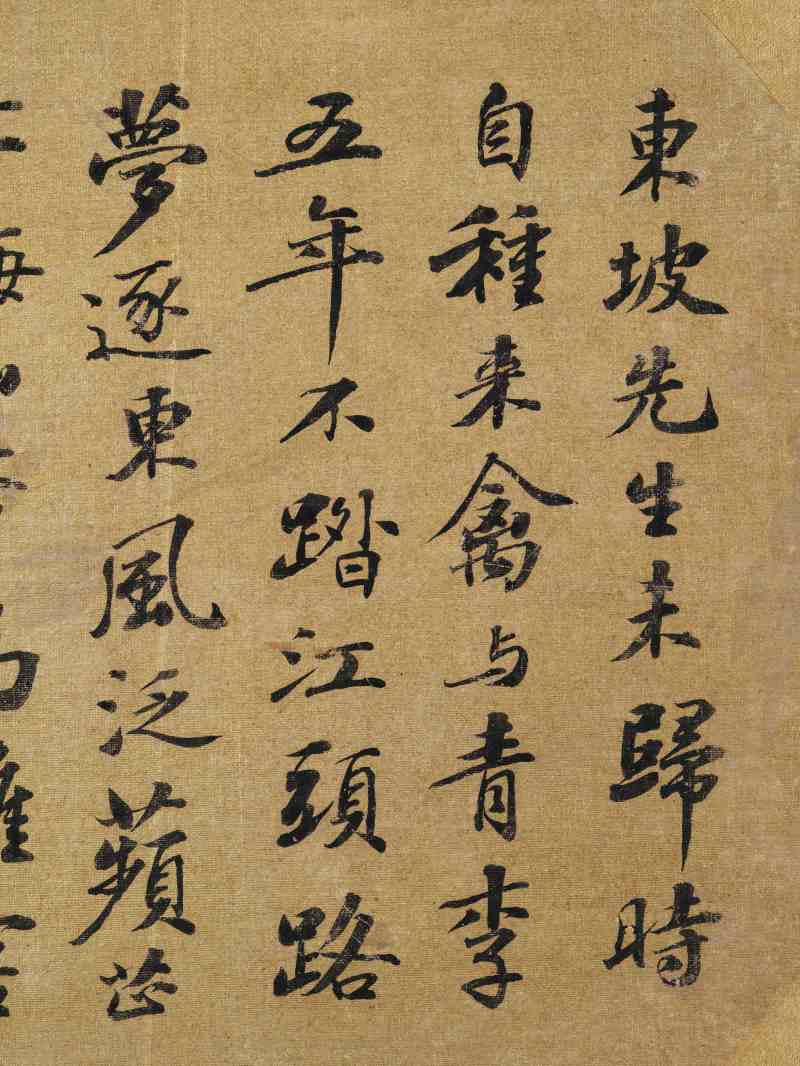 東坡先生未歸時
自種来禽与青李
五年不踏江頭路
夢逐東風泛蘋芷